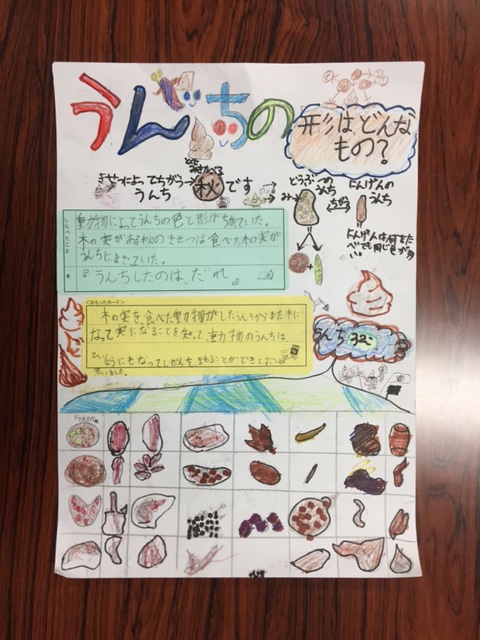 うんちの
形はどんな
もの?
きせつによってちがう→秋です
うんち
どうぶつの
うんち
ちがう
にんげんの
うんち
しらべたこと
動物によってうんちの色と形がちがっていた。
木の実がある秋のきせつは食べた木の実が
うんちにまざっていた。
本
『うんちしたのは、だれ』
<おもったカード>
木の実を食べた動物がしたうんちからまた木に
なって実になることを知って動物のうんちは
ひりょうにもなってしぜんをまもることができるとおも
いました。
うんち32こ